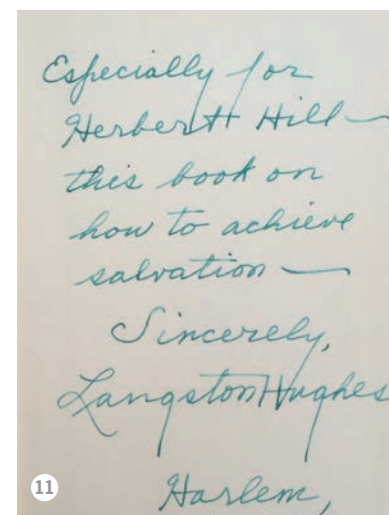 Especially for
Herbert Hill—
this book on
how to achieve
salvation—
Sincerely,
Langston Hughes
Harlem,
11